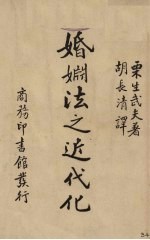 栗生武夫著
胡長清譯
婚姻法之近代化
商務印書館發行
34